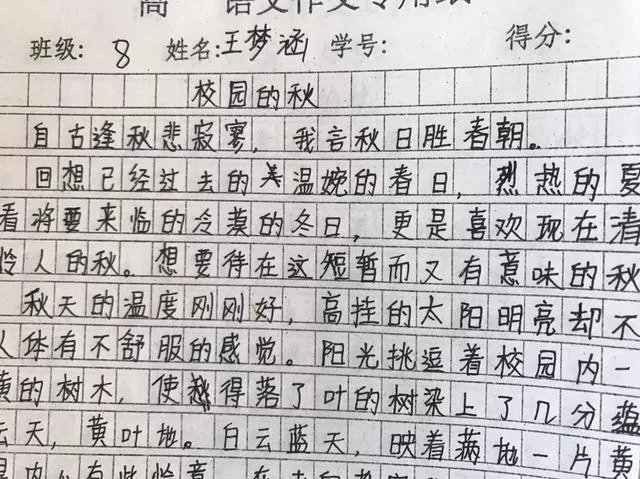 高一语文作文专用纸
班级: 8 姓名:王梦涵 学号: 得分:
校园的秋
自古逢秋悲寂寥,我言秋日胜春朝。
回想已经过去的温婉的春日,烈热的夏
看将要来临的冷漠的冬日,更是喜欢现在清
人的秋。想要待在这短暂而又有意味的秋
秋天的温度刚刚好,高挂的太阳明亮却不
人体有不舒服的感觉。阳光挑逗着校园内一
黄的树木,使得落了叶的树染上了几分蕴
云天,黄叶地。白云蓝天,映着满地一片黄